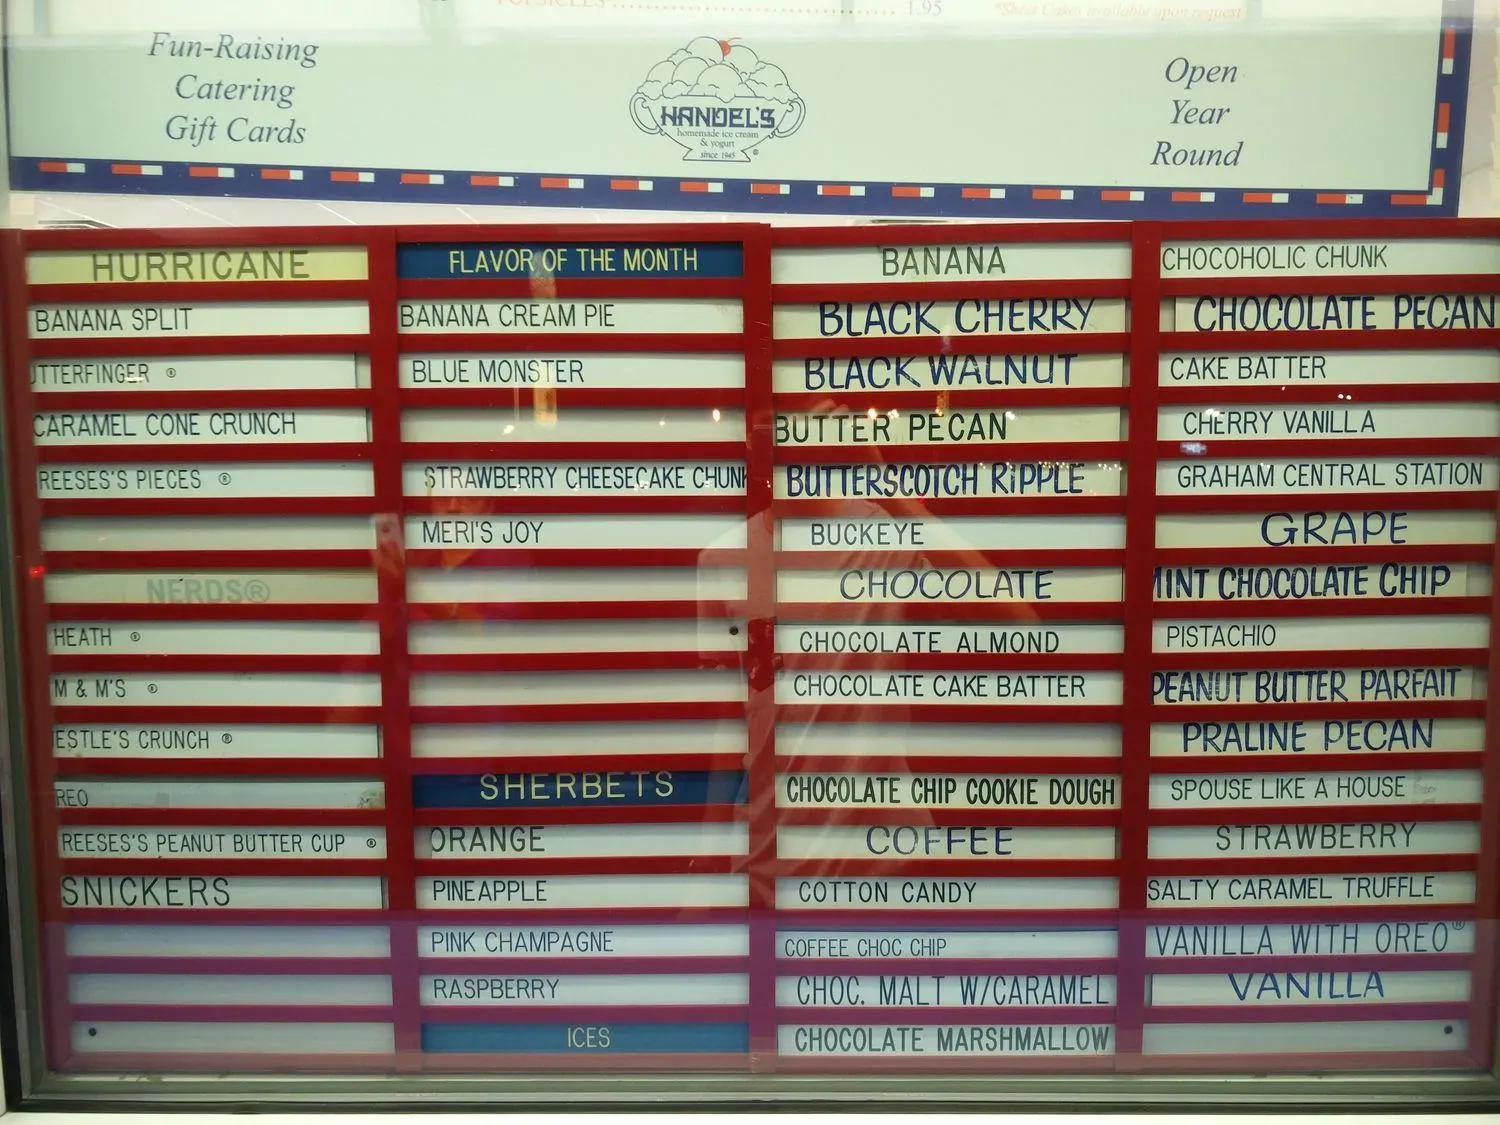 POPSICLES 1.95
*Sheet Cakes available upon request
Fun-Raising
Catering
Gift Cards
HANDEL'S
homemade ice cream
& yogurt
since 1945
®
Open
Year
Round
HURRICANE
BANANA SPLIT
UTTERFINGER ®
CARAMEL CONE CRUNCH
REESES'S PIECES ®
NERDS®
HEATH ®
M & M'S ®
ESTLE'S CRUNCH ®
REO
REESES'S PEANUT BUTTER CUP ®
SNICKERS
FLAVOR OF THE MONTH
BANANA CREAM PIE
BLUE MONSTER
STRAWBERRY CHEESECAKE CHUNK
MERI'S JOY
SHERBETS
ORANGE
PINEAPPLE
PINK CHAMPAGNE
RASPBERRY
ICES
BANANA
BLACK CHERRY
BLACK WALNUT
BUTTER PECAN
BUTTERSCOTCH RIPPLE
BUCKEYE
CHOCOLATE
CHOCOLATE ALMOND
CHOCOLATE CAKE BATTER
CHOCOLATE CHIP COOKIE DOUGH
COFFEE
COTTON CANDY
COFFEE CHOC CHIP
CHOC. MALT W/CARAMEL
CHOCOLATE MARSHMALLOW
CHOCOHOLIC CHUNK
CHOCOLATE PECAN
CAKE BATTER
CHERRY VANILLA
GRAHAM CENTRAL STATION
GRAPE
MINT CHOCOLATE CHIP
PISTACHIO
PEANUT BUTTER PARFAIT
PRALINE PECAN
SPOUSE LIKE A HOUSE
STRAWBERRY
SALTY CARAMEL TRUFFLE
VANILLA WITH OREO®
VANILLA